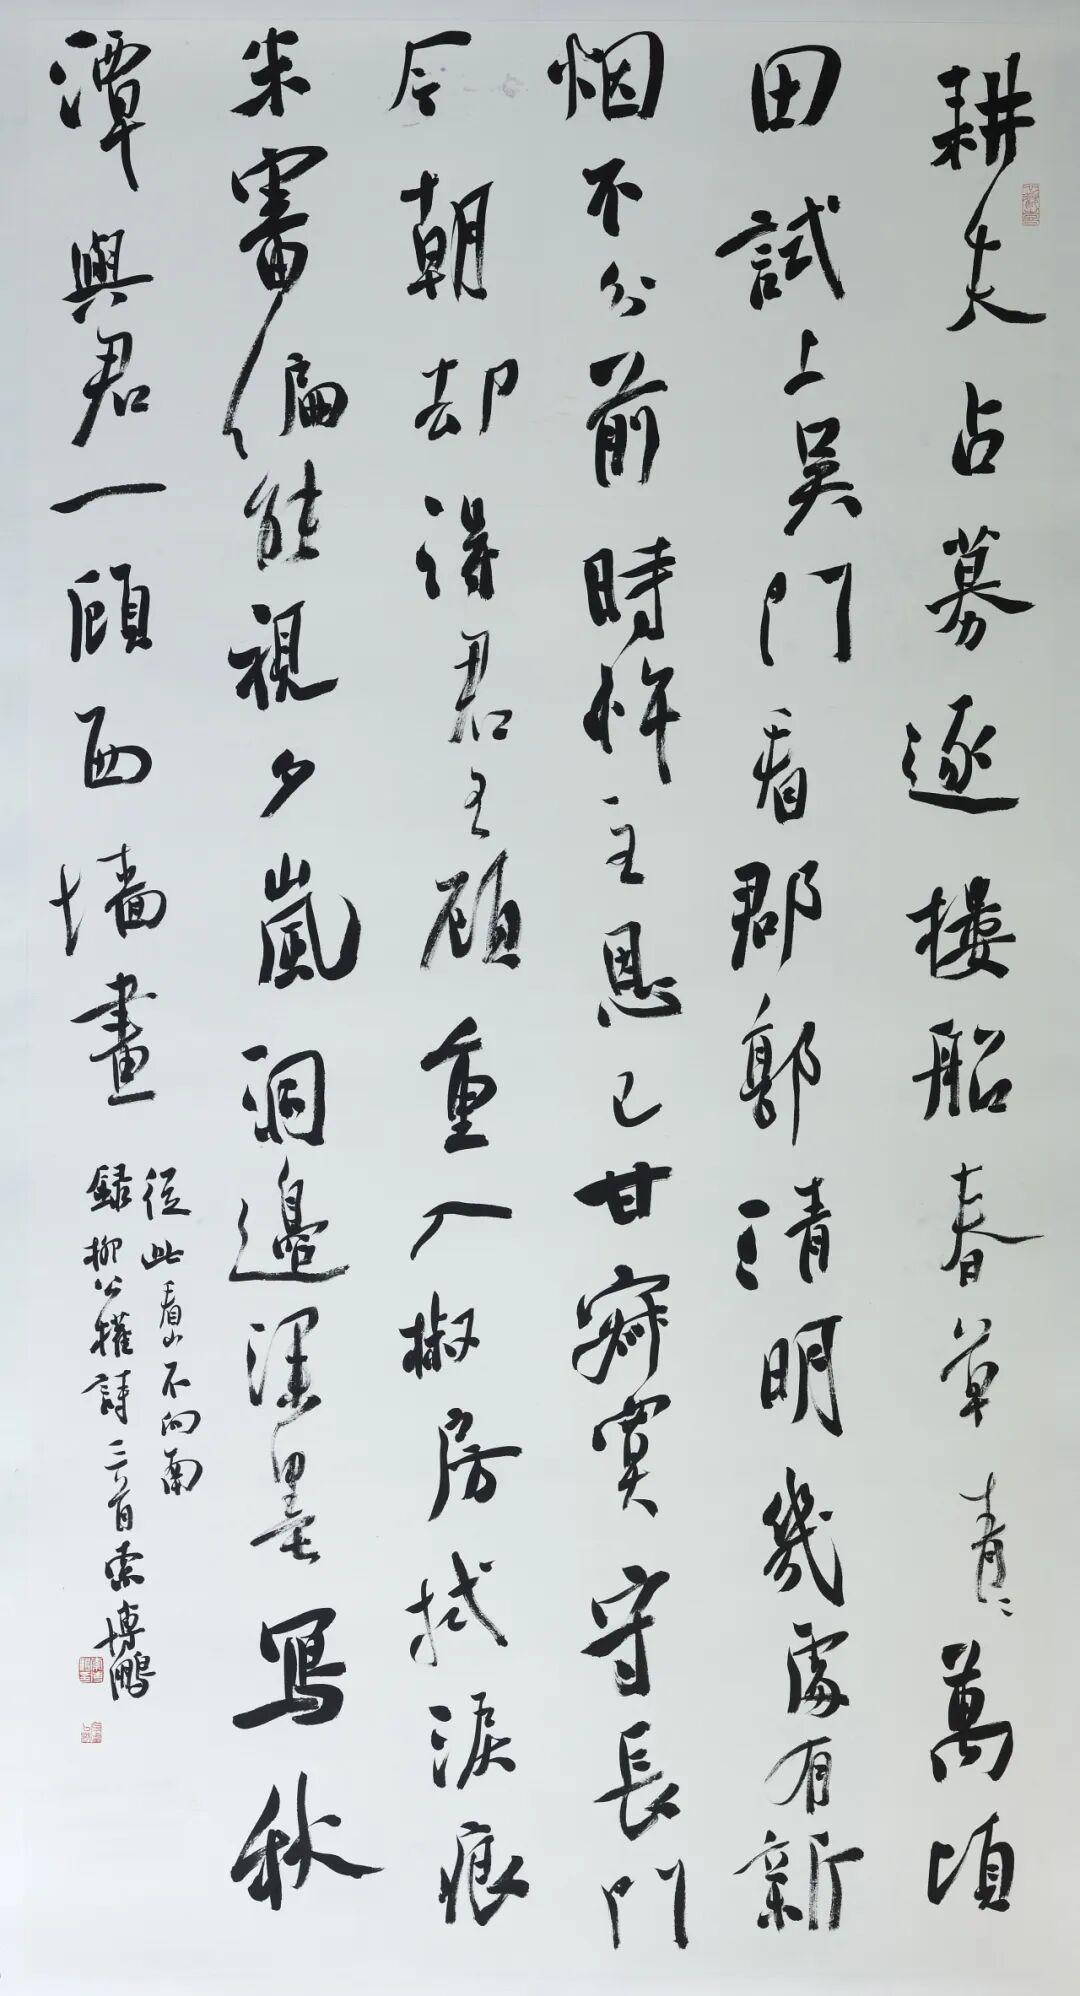 耕夫占募逐樓船春草青〻萬頃
田試上吳門看郡郭清明幾處有新
烟不分前時忤主恩已甘寂寞守長門
今朝却得君王顧重入椒房拭淚痕
朱審偏能視夕嵐洞邊深墨寫秋
潭與君一顧西墙畫
從此看山不向南
録柳公權詩三首索博鵬